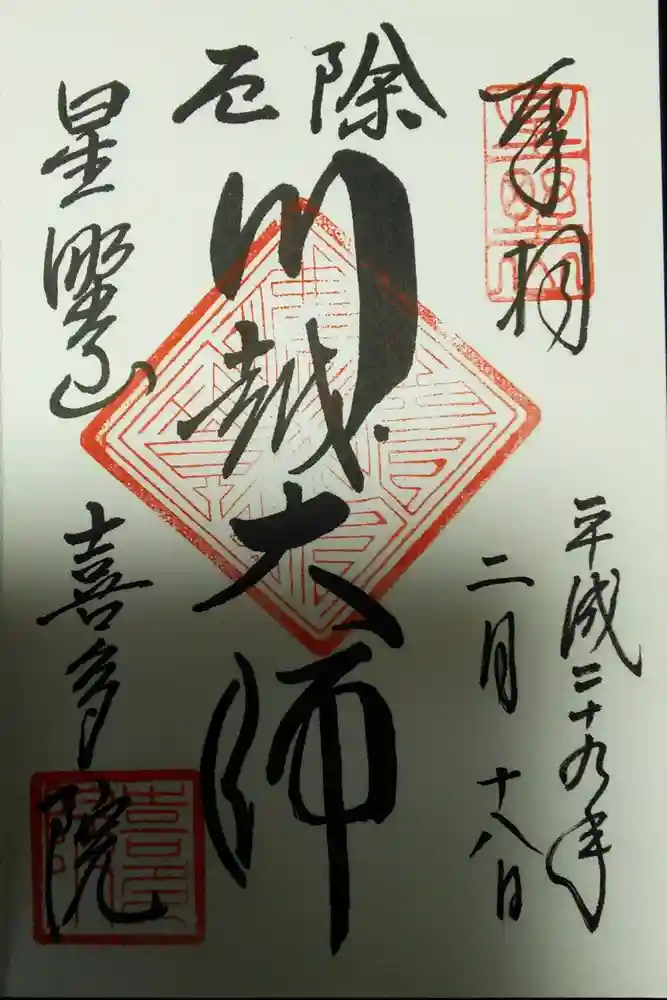 奉拝
平成二十九年
二月十八日
厄除
川越大師
星野山
喜多院